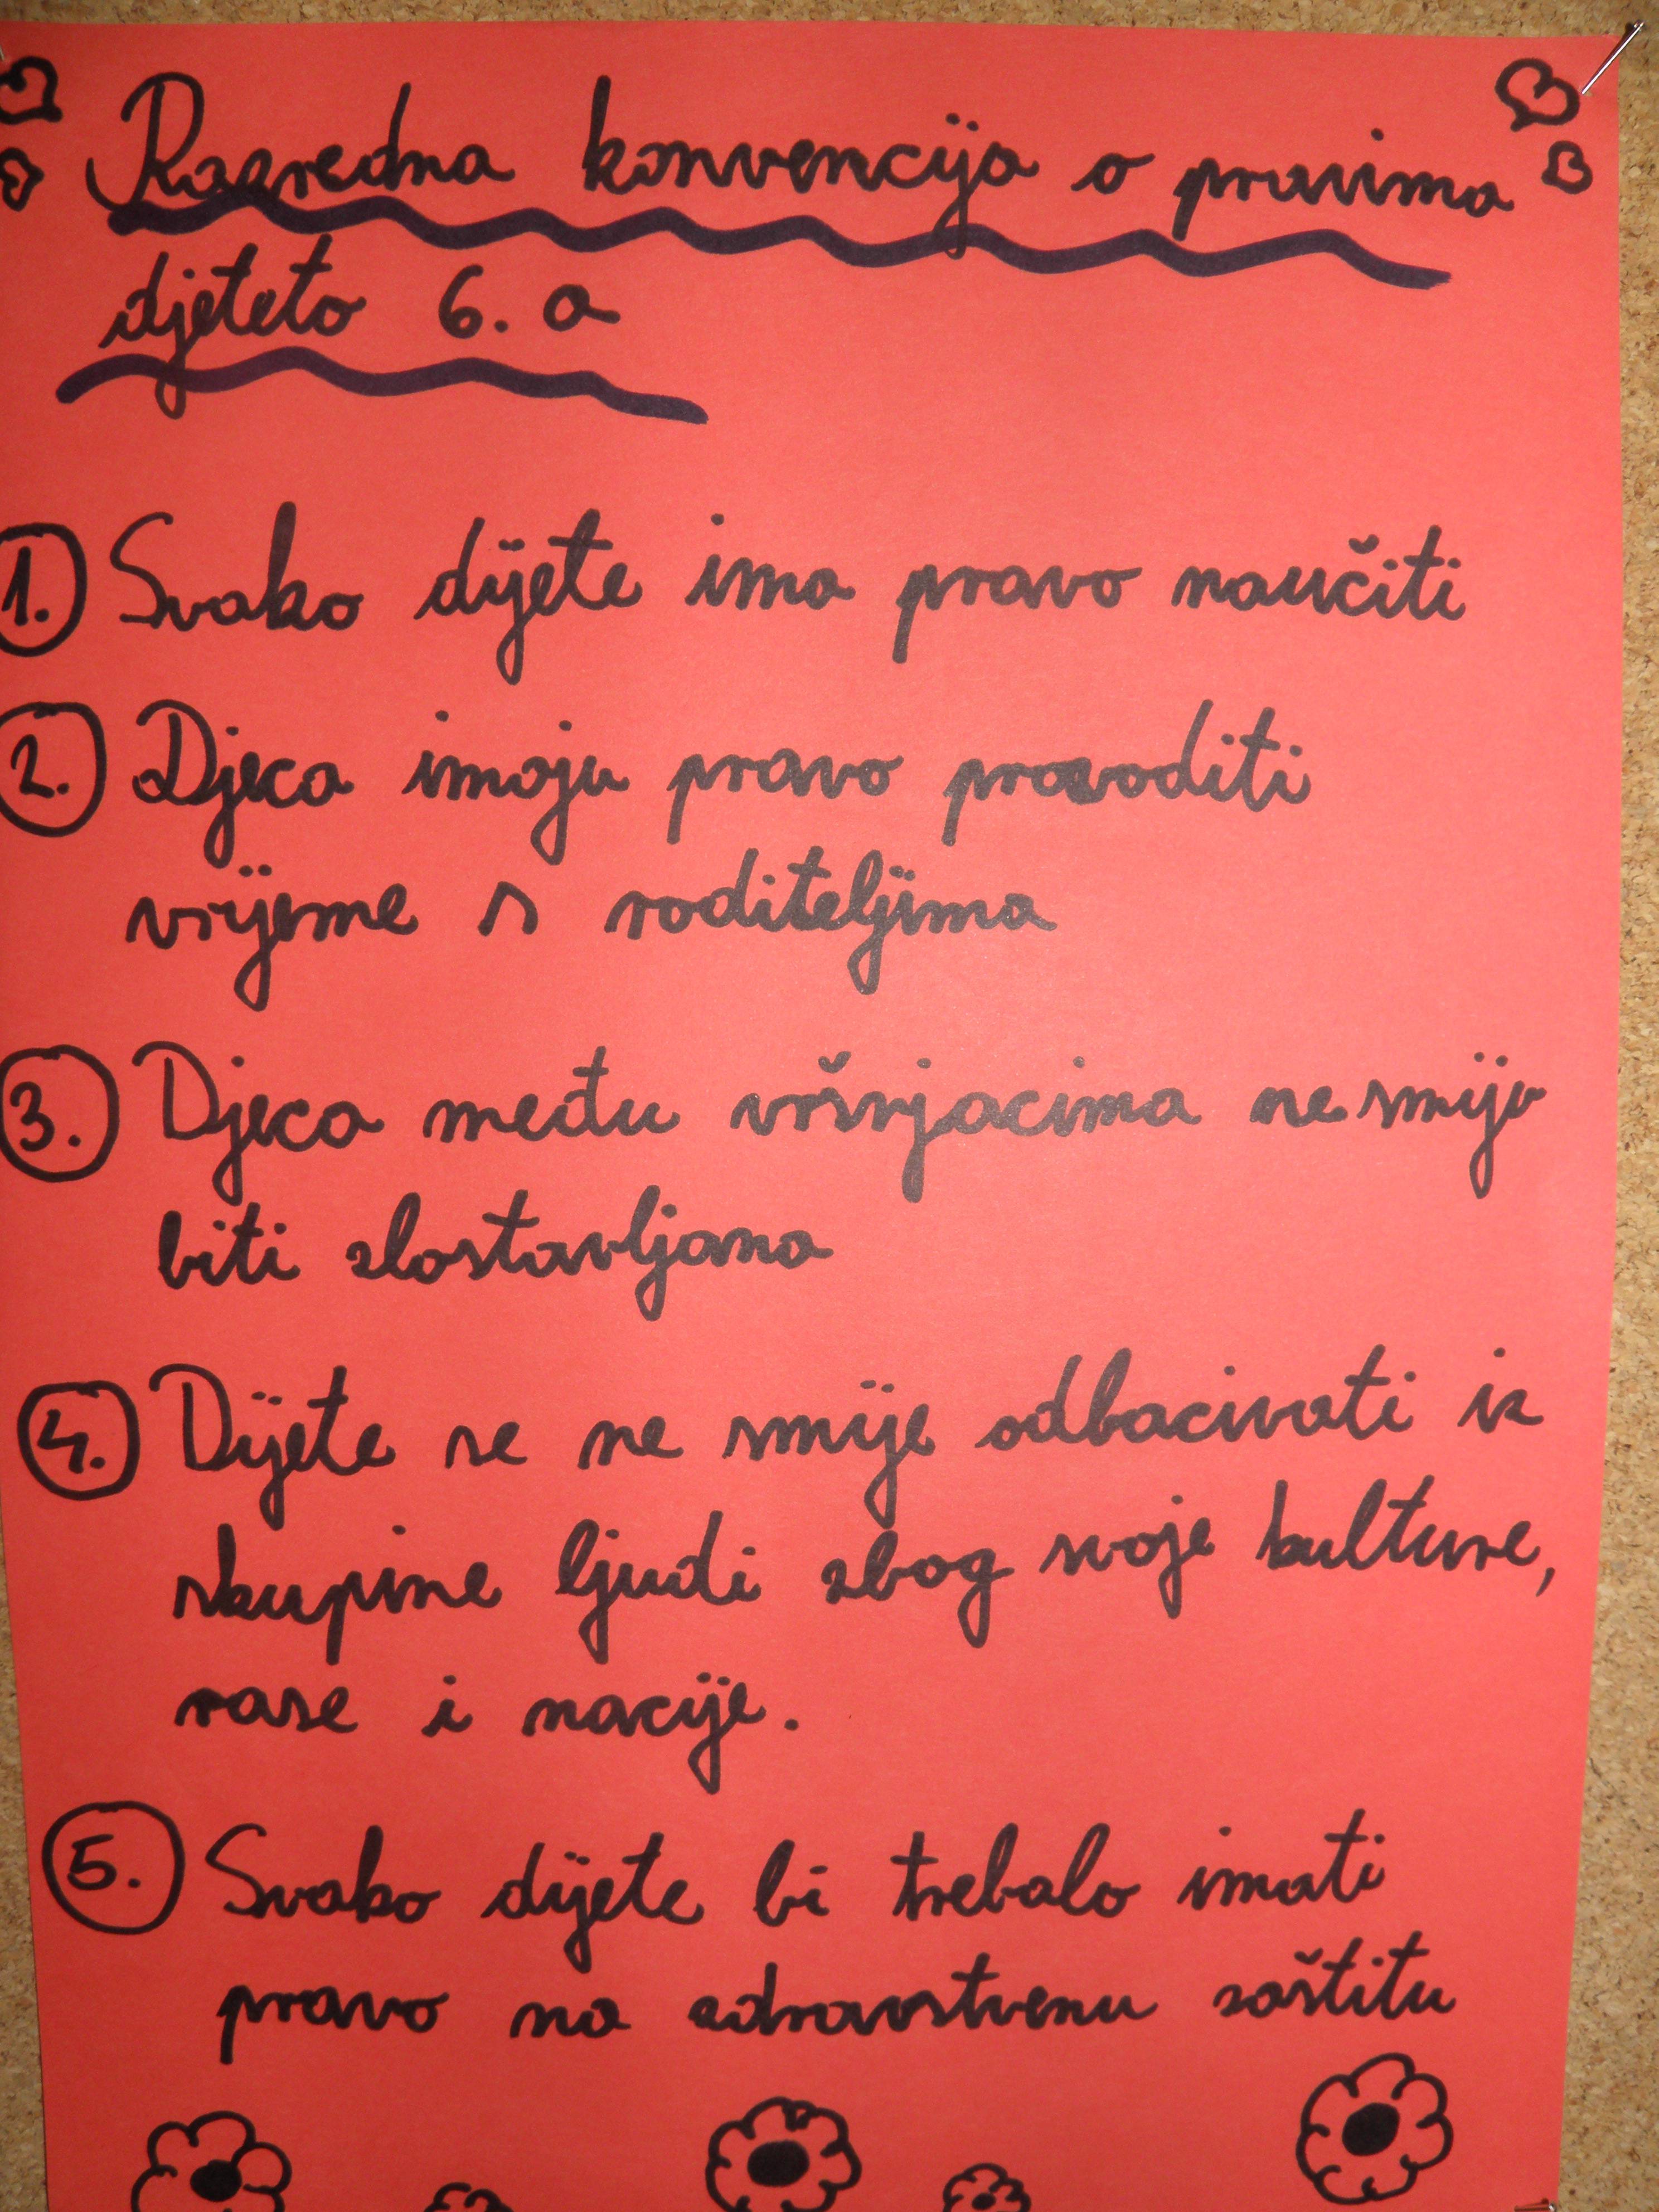 Razredna konvencija o pravima
djeteta 6. a
1. Svako dijete ima pravo naučiti
2. Djeca imaju pravo provoditi
vrijeme s roditeljima
3. Djeca među vršnjacima ne smiju
biti zlostavljana
4. Dijete se ne smije odbacivati iz
skupine ljudi zbog svoje kulture,
rase i nacije.
5. Svako dijete bi trebalo imati
pravo na zdravstvenu zaštitu